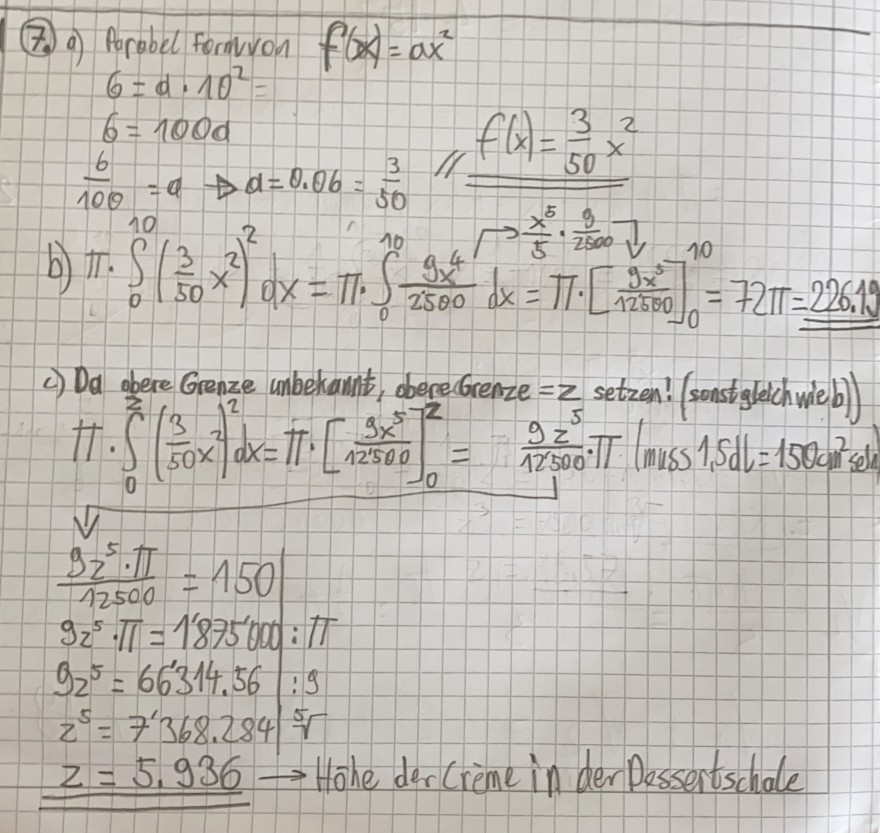 7. a) Parabel Form von f(x) = ax²
6 = a · 10² =
6 = 100a
6/100 = a → a = 0.06 = 3/50 // f(x) = 3/50 x²
→ x⁵/5 · 9/2500 ↓
b) π · ∫₀¹⁰ (3/50 x²)² dx = π · ∫₀¹⁰ 9x⁴/2500 dx = π · [9x⁵/12500]₀¹⁰ = 72π = 226.19
c) Da obere Grenze unbekannt, obere Grenze = z setzen! (sonst gleich wie b))
π · ∫₀ᶻ (3/50 x²)² dx = π · [9x⁵/12'500]₀ᶻ = 9z⁵/12'500 · π (muss 1,5dL = 150cm³ sein
9z⁵ · π/12500 = 150 |
9z⁵ · π = 1'875'000 | : π
9z⁵ = 66'314.56 | : 9
z⁵ = 7'368.284 | ⁵√
z = 5.936 → Höhe der Crème in der Dessertschale